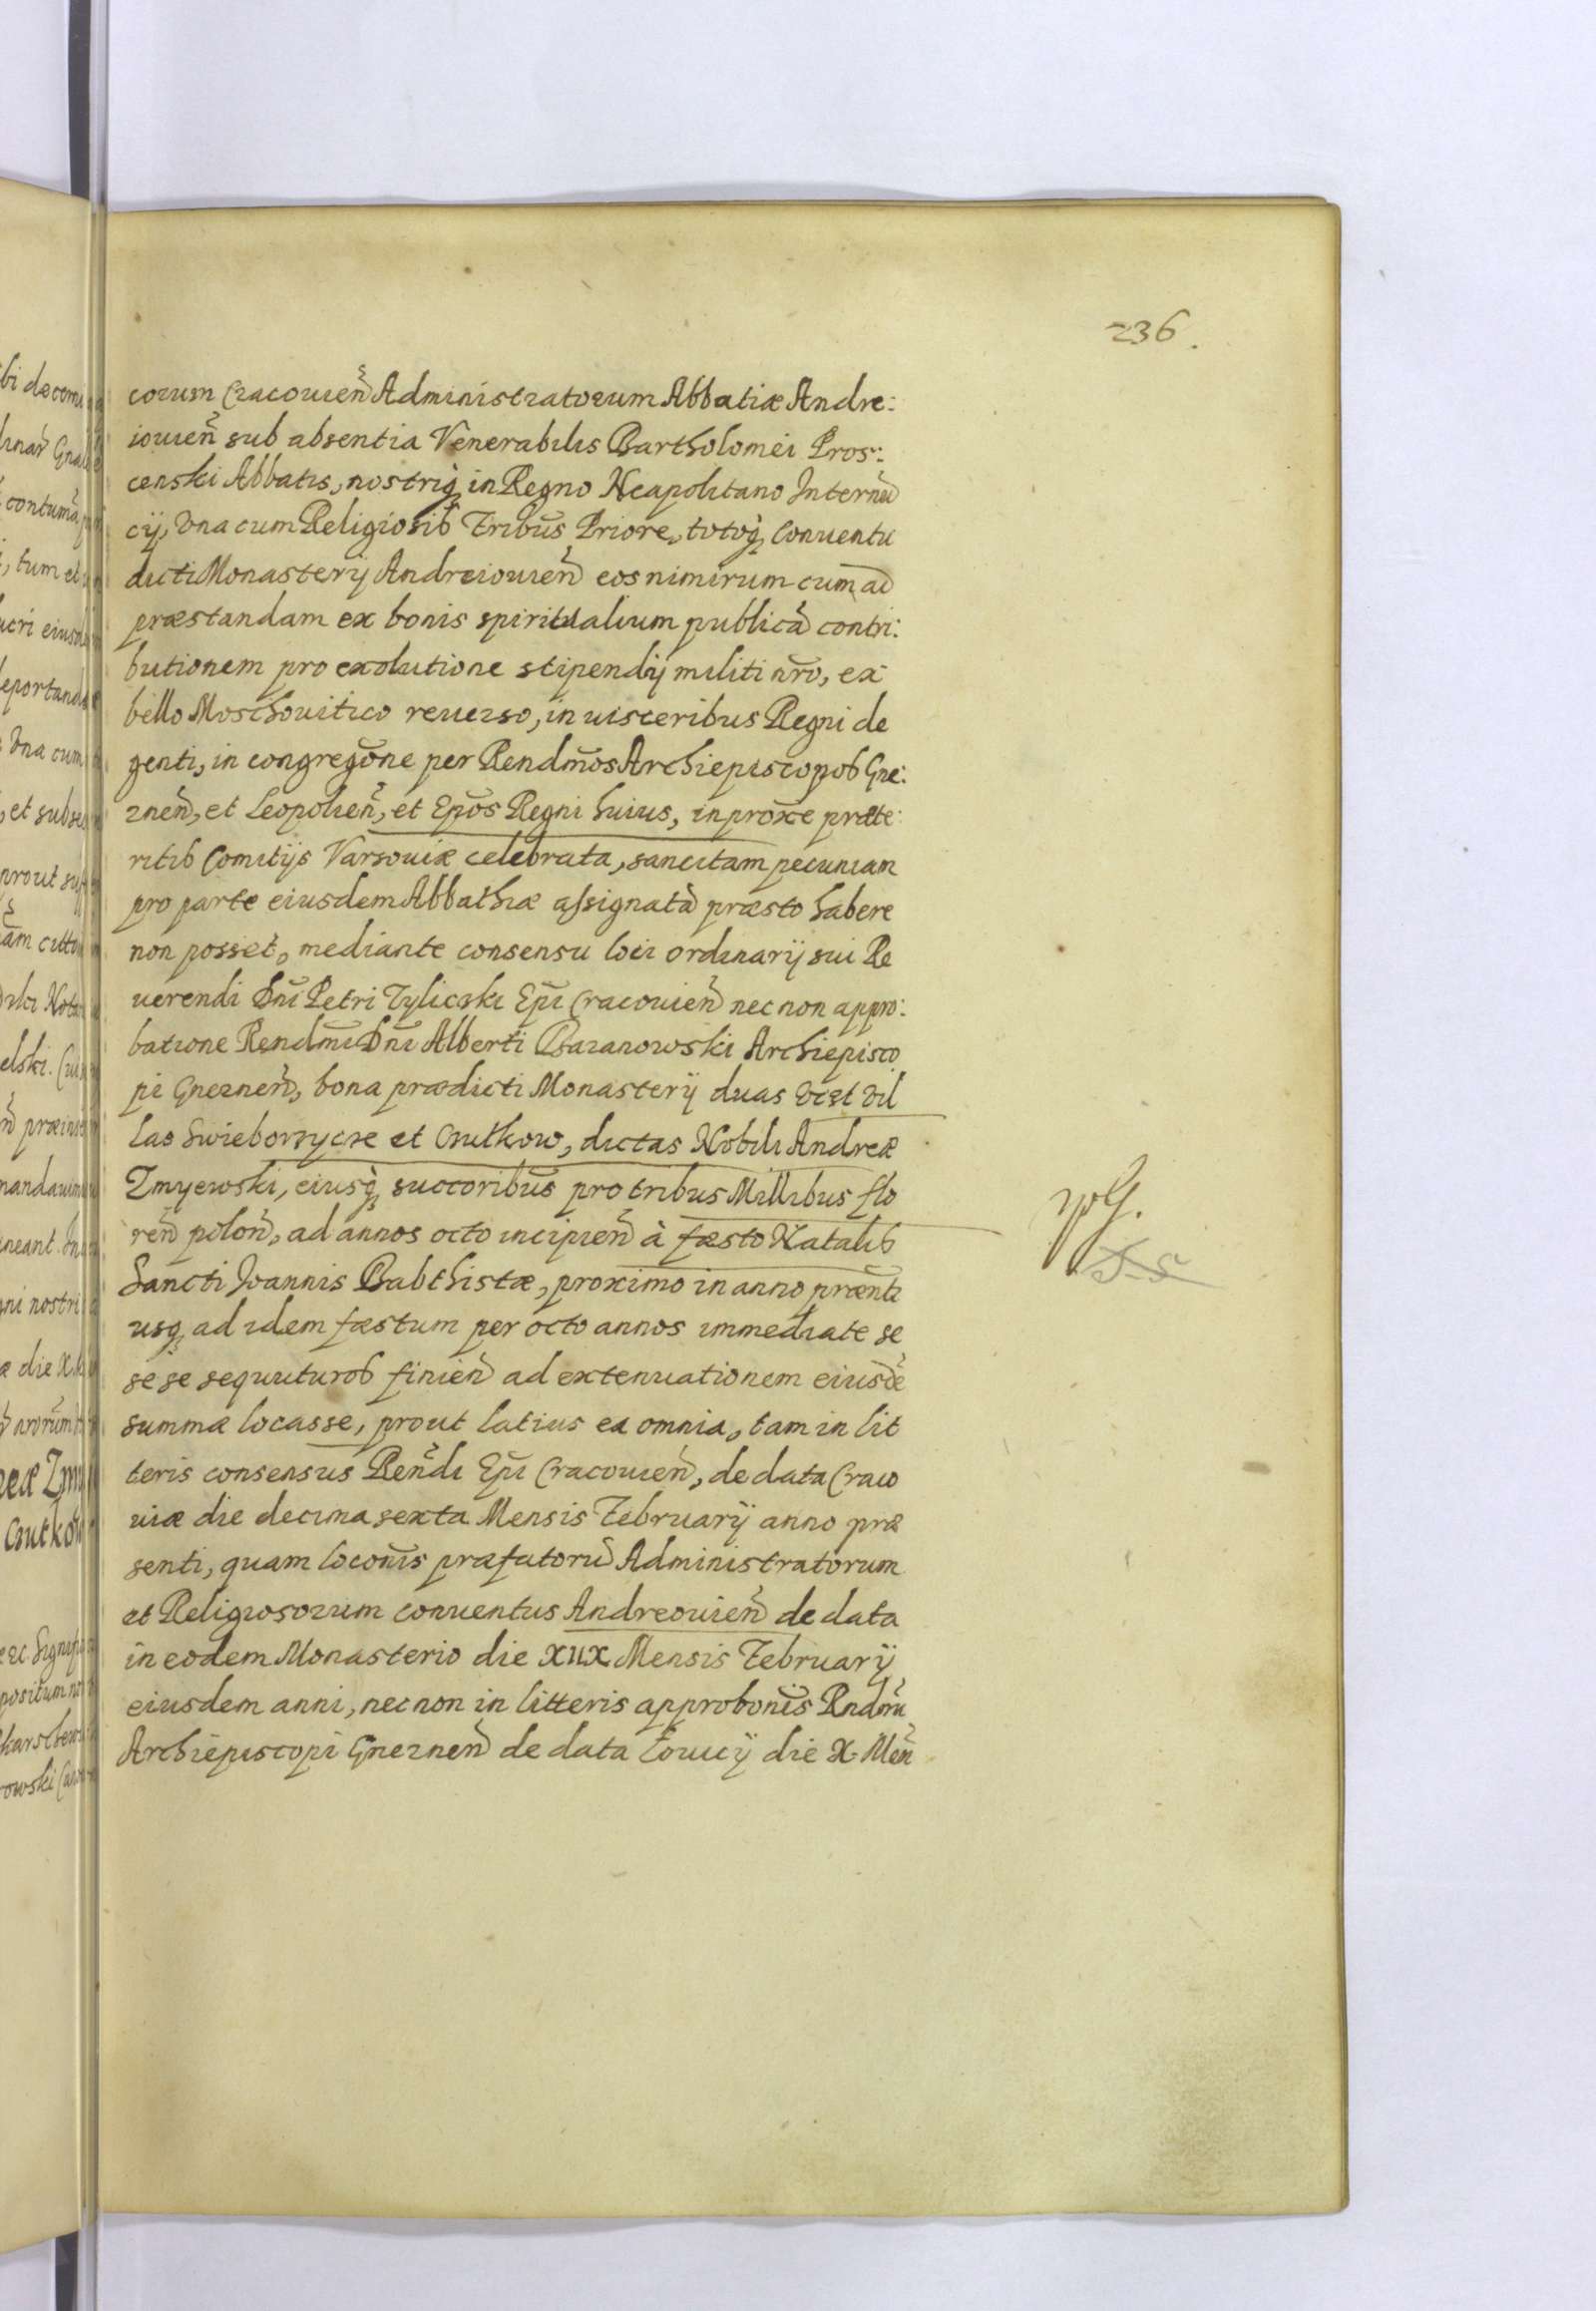 236.
corum Cracouien̄ Administratorum Abbatiæ Andre:
iouien̄ sub absentia Venerabilis Bartholomei Pros:
censki Abbatis, nostriq; in Regno Neapolitano Internū
cij, vna cum Religiosis Fribūs Priore, totoq; Conuentu
dicti Monasterij Andreiouien̄ eos nimirum cum ad
præstandam ex bonis spiritualium publicā contri:
butionem pro exolutione stipendij militi nr̄o, ex
bello Moschouitico reuerso, in uisceribus Regni de
genti, in congregōne per Rendmōs Archiepiscopos Gne:
znen̄, et Leopolien̄, et Epōs Regni huius, in proxē præte:
ritis Comitijs Varsouiæ celebrata, sancitam pecuniam
pro parte eiusdem Abbathiæ assignatā præsto habere
non posset, mediante consensu loci ordinarij sui Re
uerendi Dn̄i Petri Tylicski Ep̄i Cracouien̄ nec non appro:
batione Rendmī Dn̄i Alberti Baranowski Archiepisco
pi Gneznen̄, bona prædicti Monasterij duas vczt vil
las Swieborzycze et Cnutkow, dictas Nobili Andreæ
Zmyewski, eiusq; succoribūs pro tribus Millibus flo
ren̄ polon̄, ad annos octo incipien̄ à fæsto Natalis
Sancti Joannis Babthistæ, proximo in anno præn̄ti
usq; ad idem fæstum per octo annos immediate se
se se sequuturos finien̄ ad extenuationem eiusdē
summæ locasse, prout latius ea omnia, tam in lit
teris consensus Ren̄di Ep̄i Cracouien̄, de data Craco
uiæ die decima sexta Mensis February anno præ
senti, quam locon̄is præfatorū Administratorum
et Religiosorum conuentus Andreouien̄ de data
in eodem Monasterio die XIIX Mensis February
eiusdem anni, nec non in litteris approbon̄is Rndmi
Archiepiscopi Gneznen̄ de data Louicij die X. Men̄